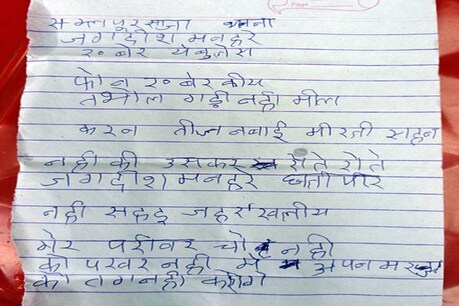 सभलपूर साजा थाना
जगदीश मनहरे
२०बेर ये बुलेरा
फोन २०बेर कीय
तभोल गड़ी नही मील
करन तीज बबाई मीरजी साहन
नही की उसकर रोते रोते
जगदीश मनहरे घती पीर
नही सहइ जहर खालीय
मेर परीवार चो नही
को परवर नही मे अपन मर
को तग नही करोगे